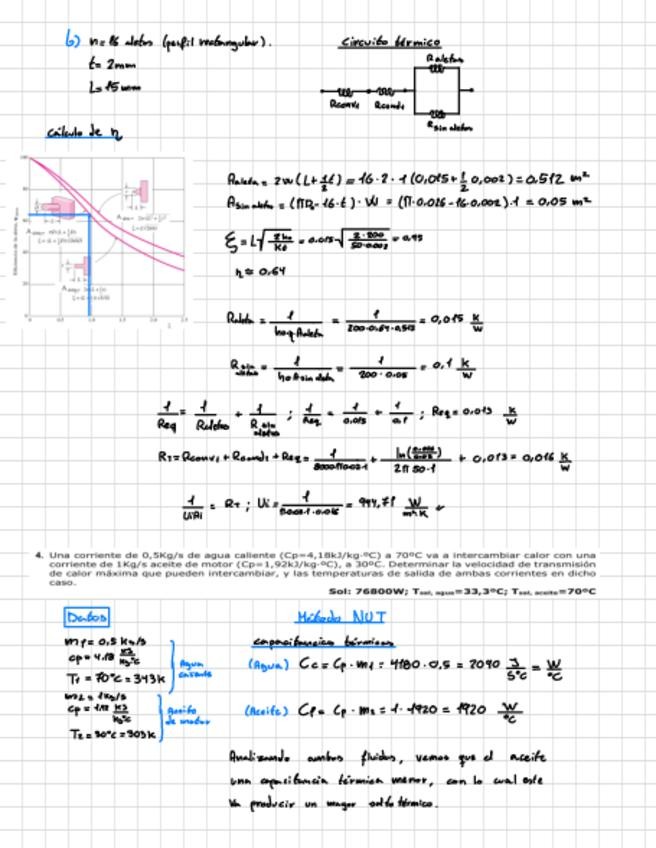 b) n=16 aletas (perfil rectangular).
t= 2mm
L=15mm
Circuito térmico
Raletas
Rconv1 Rcond1
Rsin aletas
cálculo de η
Aaleta = 2w(L+½t) = 16·2·1(0,015+½ 0,002) = 0,512 m²
Asin aletas = (πD₂-16·t)·W = (π·0.026-16·0.002)·1 = 0,05 m²
η ≈ 0,64
Raleta = 1/(h₀·η·Aaleta) = 1/(200·0.64·0.512) = 0,015 K/W
Rsin aletas = 1/(h₀·Asin aleta) = 1/(200·0.05) = 0,1 K/W
1/Req = 1/Raletas + 1/Rsin aletas ; 1/Req = 1/0,015 + 1/0,1 ; Req = 0,013 K/W
+ 0,013 = 0,016 K/W
1/UiAi = RT ; Ui =
4. Una corriente de 0,5Kg/s de agua caliente (Cp=4,18kJ/kg·ºC) a 70ºC va a intercambiar calor con una
corriente de 1Kg/s aceite de motor (Cp=1,92kJ/kg·ºC), a 30ºC. Determinar la velocidad de transmisión
de calor máxima que pueden intercambiar, y las temperaturas de salida de ambas corrientes en dicho
caso.
Sol: 76800W; Tsal, agua=33,3ºC; Tsal, aceite=70ºC
Datos
Método NUT
m₁= 0,5 Kg/s
cp= 4.18 kJ/kgºC
T₁ = 70ºC = 343K
Agua
caliente
m₂= 1kg/s
T₂ = 30ºC = 303K
Aceite
de motor
capacitancias térmicas
(Agua) Cc = Cp · m₁ = 4180 · 0,5 = 2090 J/sºC = W/ºC
(Aceite) Cf = Cp · m₂ = 1 · 1920 = 1920 W/ºC
Analizando ambos fluidos, vemos que el aceite
una capacitancia térmica menor, con lo cual este
va producir un mayor salto térmico.